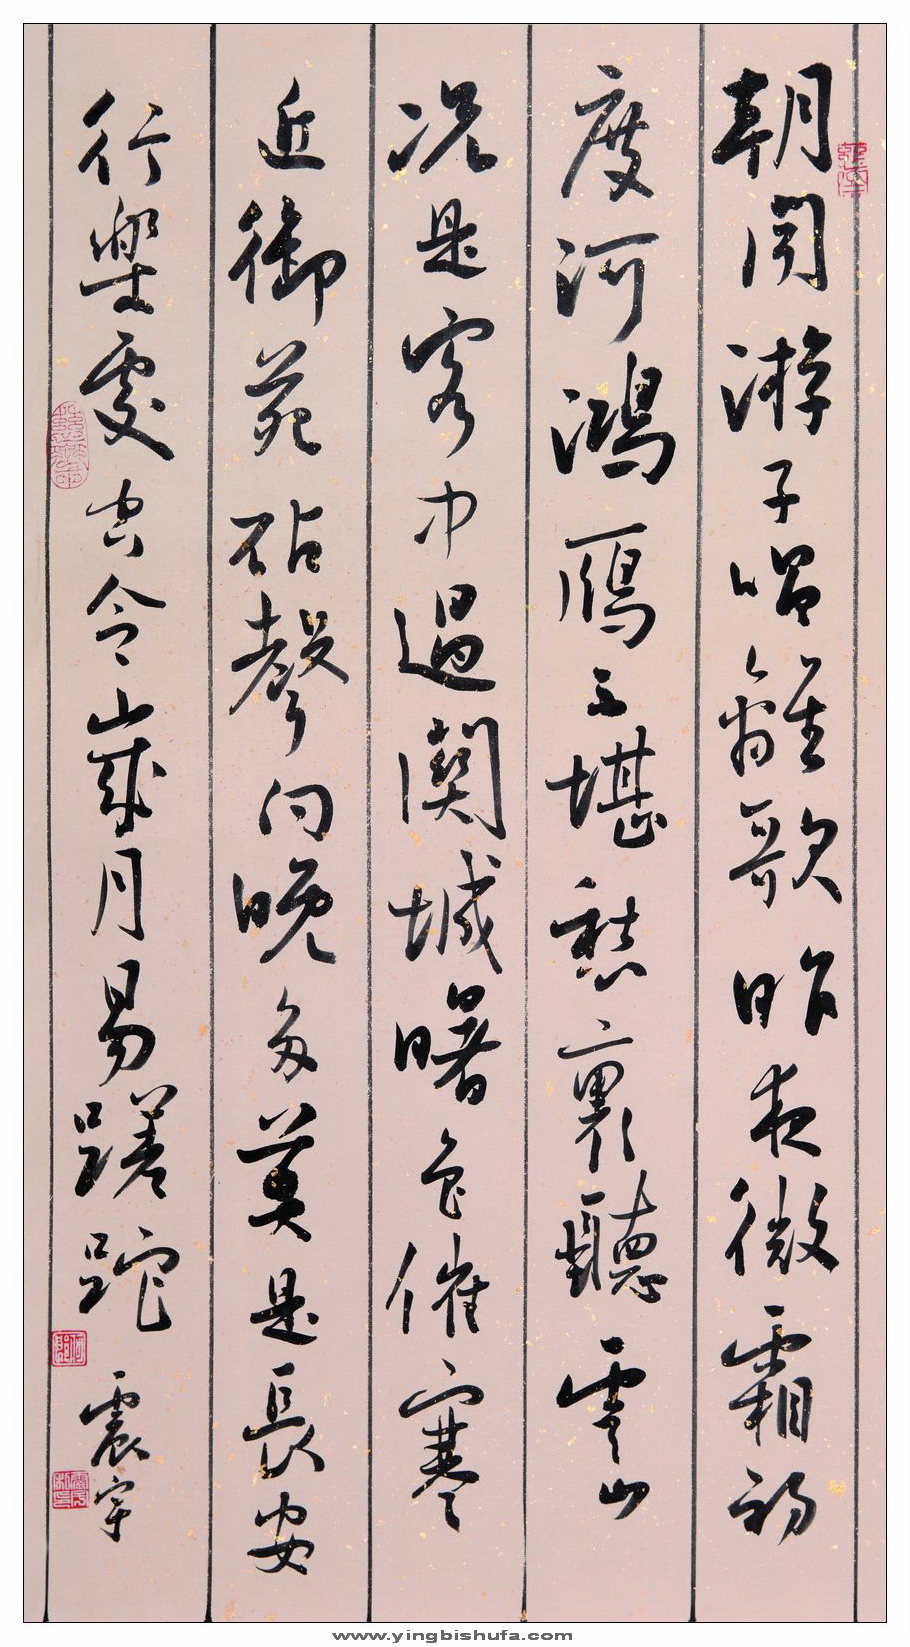 朝聞游子唱離歌昨夜微霜初
度河鴻鴈不堪愁裏聽雲山
况是客中過關城曙色催寒
近御苑砧聲向晚多莫是長安
行樂處空令歲月易蹉跎 震宇
www.yingbishufa.com